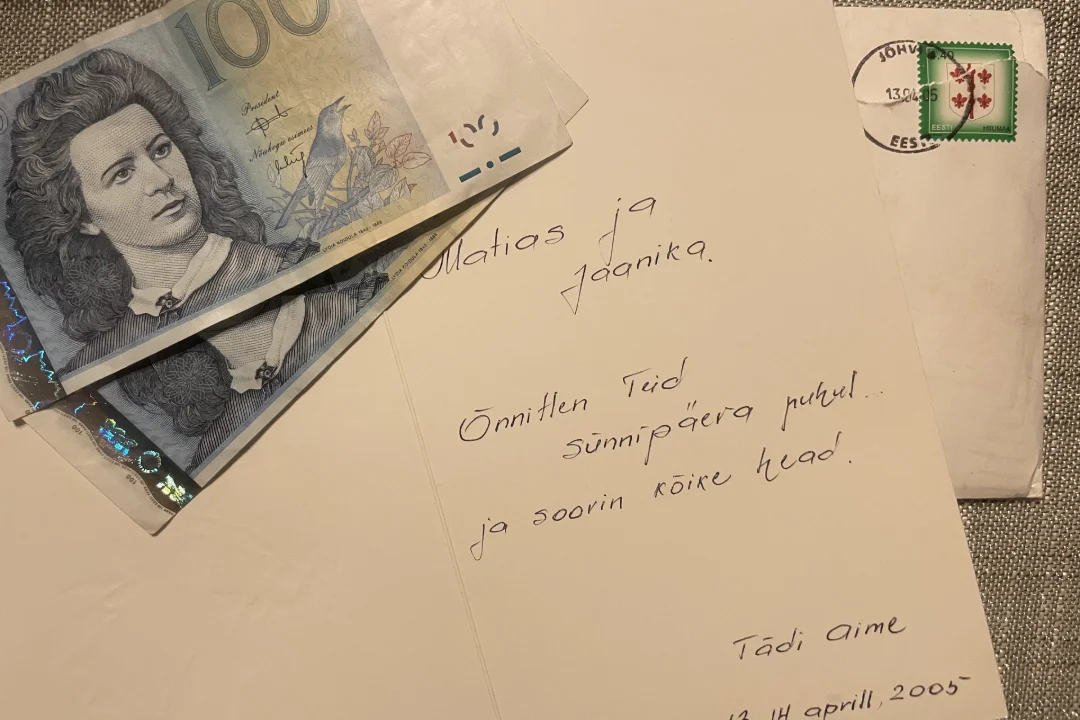 100
President
Nõukogu esimees
LYDIA KOIDULA 1843-1886
100
LYDIA KOIDULA 1843-1886
100
100
JÕHVI
13.04.05
EESTI
4.40
EESTI
HIIUMAA
Matias ja
Jaanika.
Õnnitlen Teid
sünnipäeva puhul..
ja soovin kõike head.
Tädi Aime
13, 14 aprill, 2005